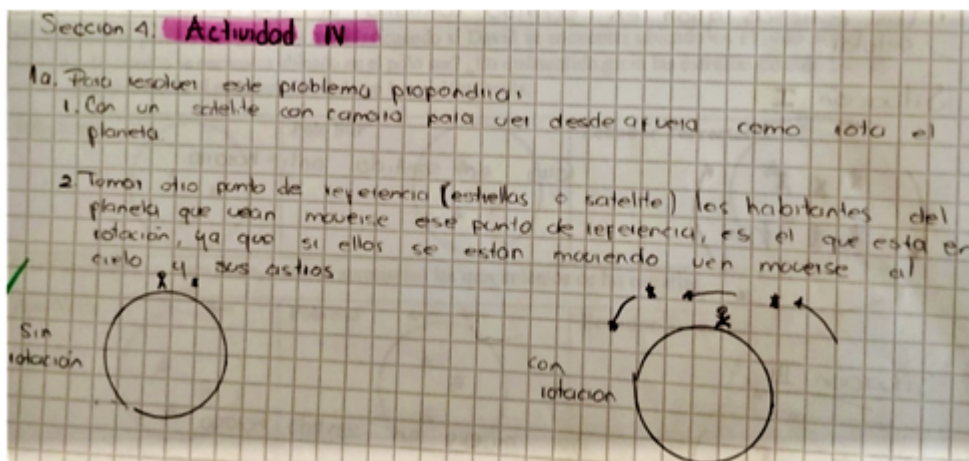 Seccion 4. Actividad IV
1a. Para resolver este problema propondria:
1. Con un satelite con camara para ver desde afuera como rota el
planeta
2. Tomar otro punto de referencia (estrellas o satelite) los habitantes del
planeta que vean moverse ese punto de referencia, es el que esta en
rotación, ya que si ellos se estan moviendo ven moverse el
cielo y sus astros
Sin
rotación
con
rotacion